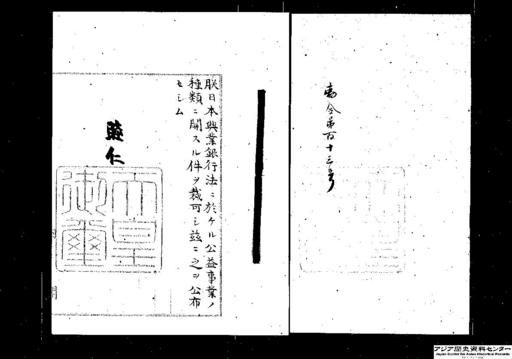 勅令第百十三号
朕日本興業銀行法ニ於ケル公益事業ノ
種類ニ関スル件ヲ裁可シ茲ニ之ヲ公布
セシム
睦仁
天皇
御璽
アジア歴史資料センター
Japan Center for Asian Historical Records